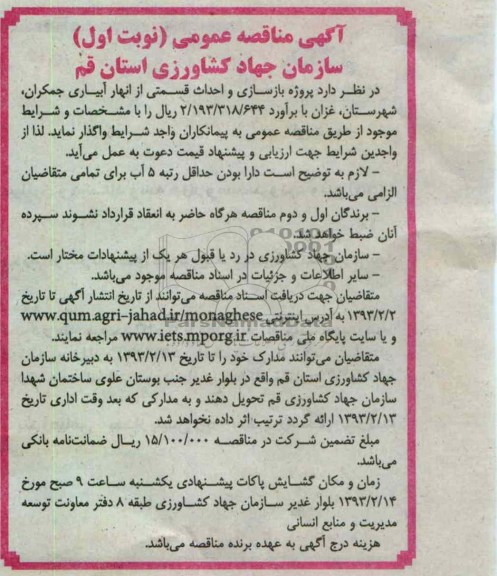 آگهی مناقصه عمومی (نوبت اول)
سازمان جهاد کشاورزی استان قم
در نظر دارد پروژه بازسازی و احداث قسمتی از انهار آبیاری جمکران،
شهرستان، غزان با برآورد ۲/۱۹۳/۳۱۸/۶۴۴ ریال را با مشخصات و شرایط
موجود از طریق مناقصه عمومی به پیمانکاران واجد شرایط واگذار نماید. لذا از
واجدین شرایط جهت ارزیابی و پیشنهاد قیمت دعوت به عمل می‌آید.
- لازم به توضیح است دارا بودن حداقل رتبه ۵ آب برای تمامی متقاضیان
الزامی می‌باشد.
- برندگان اول و دوم مناقصه هرگاه حاضر به انعقاد قرارداد نشوند سپرده
آنان ضبط خواهد شد.
- سازمان جهاد کشاورزی در رد یا قبول هر یک از پیشنهادات مختار است.
- سایر اطلاعات و جزئیات در اسناد مناقصه موجود می‌باشد.
متقاضیان جهت دریافت اسناد مناقصه می‌توانند از تاریخ انتشار آگهی تا تاریخ
۱۳۹۳/۲/۲ به آدرس اینترنتی www.qum.agri-jahad.ir/monaghese
و یا سایت پایگاه ملی مناقصات www.iets.mporg.ir مراجعه نمایند.
متقاضیان می‌توانند مدارک خود را تا تاریخ ۱۳۹۳/۲/۱۳ به دبیرخانه سازمان
جهاد کشاورزی استان قم واقع در بلوار غدیر جنب بوستان علوی ساختمان شهدا
سازمان جهاد کشاورزی قم تحویل دهند و به مدارکی که بعد وقت اداری تاریخ
۱۳۹۳/۲/۱۳ ارائه گردد ترتیب اثر داده نخواهد شد.
مبلغ تضمین شرکت در مناقصه ۱۵/۱۰۰/۰۰۰ ریال ضمانت‌نامه بانکی
می‌باشد.
زمان و مکان گشایش پاکات پیشنهادی یکشنبه ساعت ۹ صبح مورخ
۱۳۹۳/۲/۱۴ بلوار غدیر سازمان جهاد کشاورزی طبقه ۸ دفتر معاونت توسعه
مدیریت و منابع انسانی
هزینه درج آگهی به عهده برنده مناقصه می‌باشد.